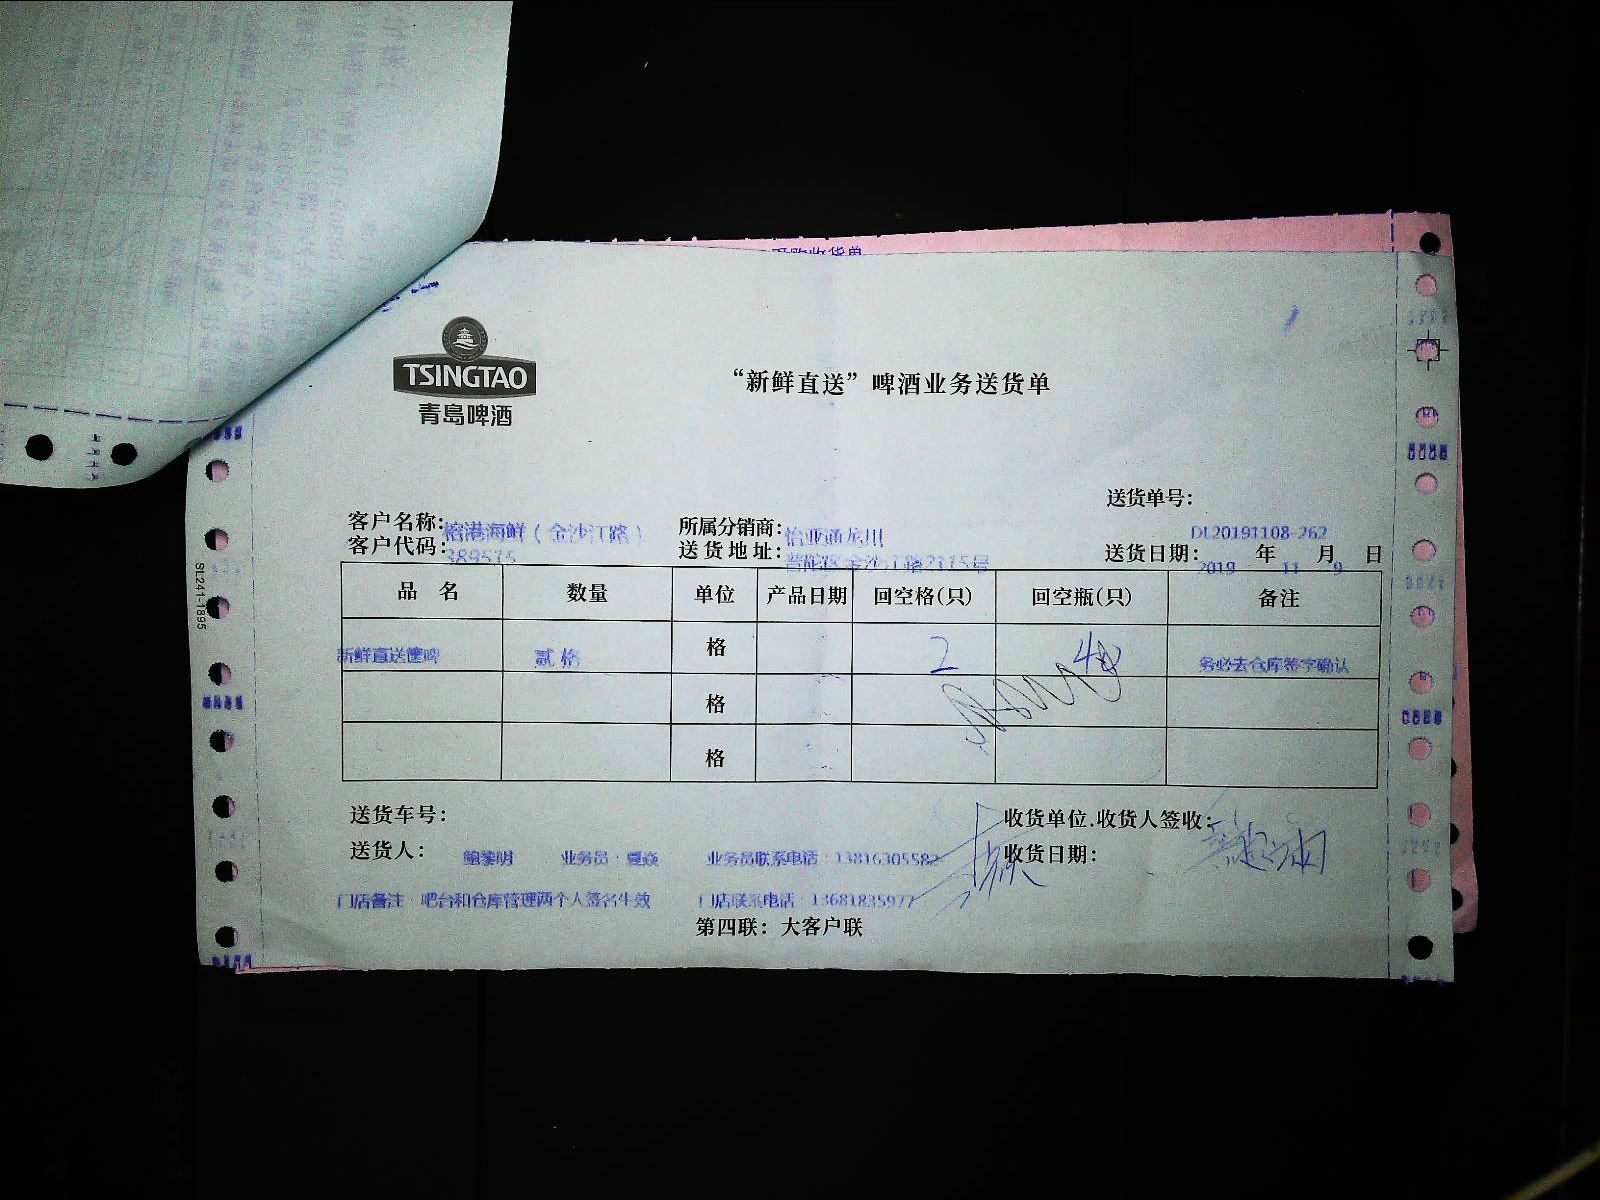 TSINGTAO
青岛啤酒
“新鲜直送”啤酒业务送货单
送货单号：
DL20191108-262
客户名称：榕港海鲜（金沙江路） 所属分销商：怡亚通龙川
客户代码：389575 送货地址：普陀区金沙江路2115号 送货日期：2019年11月9日
品 名 数量 单位 产品日期 回空格(只) 回空瓶(只) 备注
新鲜直送 贰格 格 2 48 务必去仓库签字确认
格
格
送货车号： 收货单位.收货人签收：
送货人：鲍黎明 业务员：夏焱 业务员联系电话：13816305582 收货日期：
门店备注：吧台和仓库管理两个人签名生效 门店联系电话：13681835977
第四联：大客户联
SL241-1895